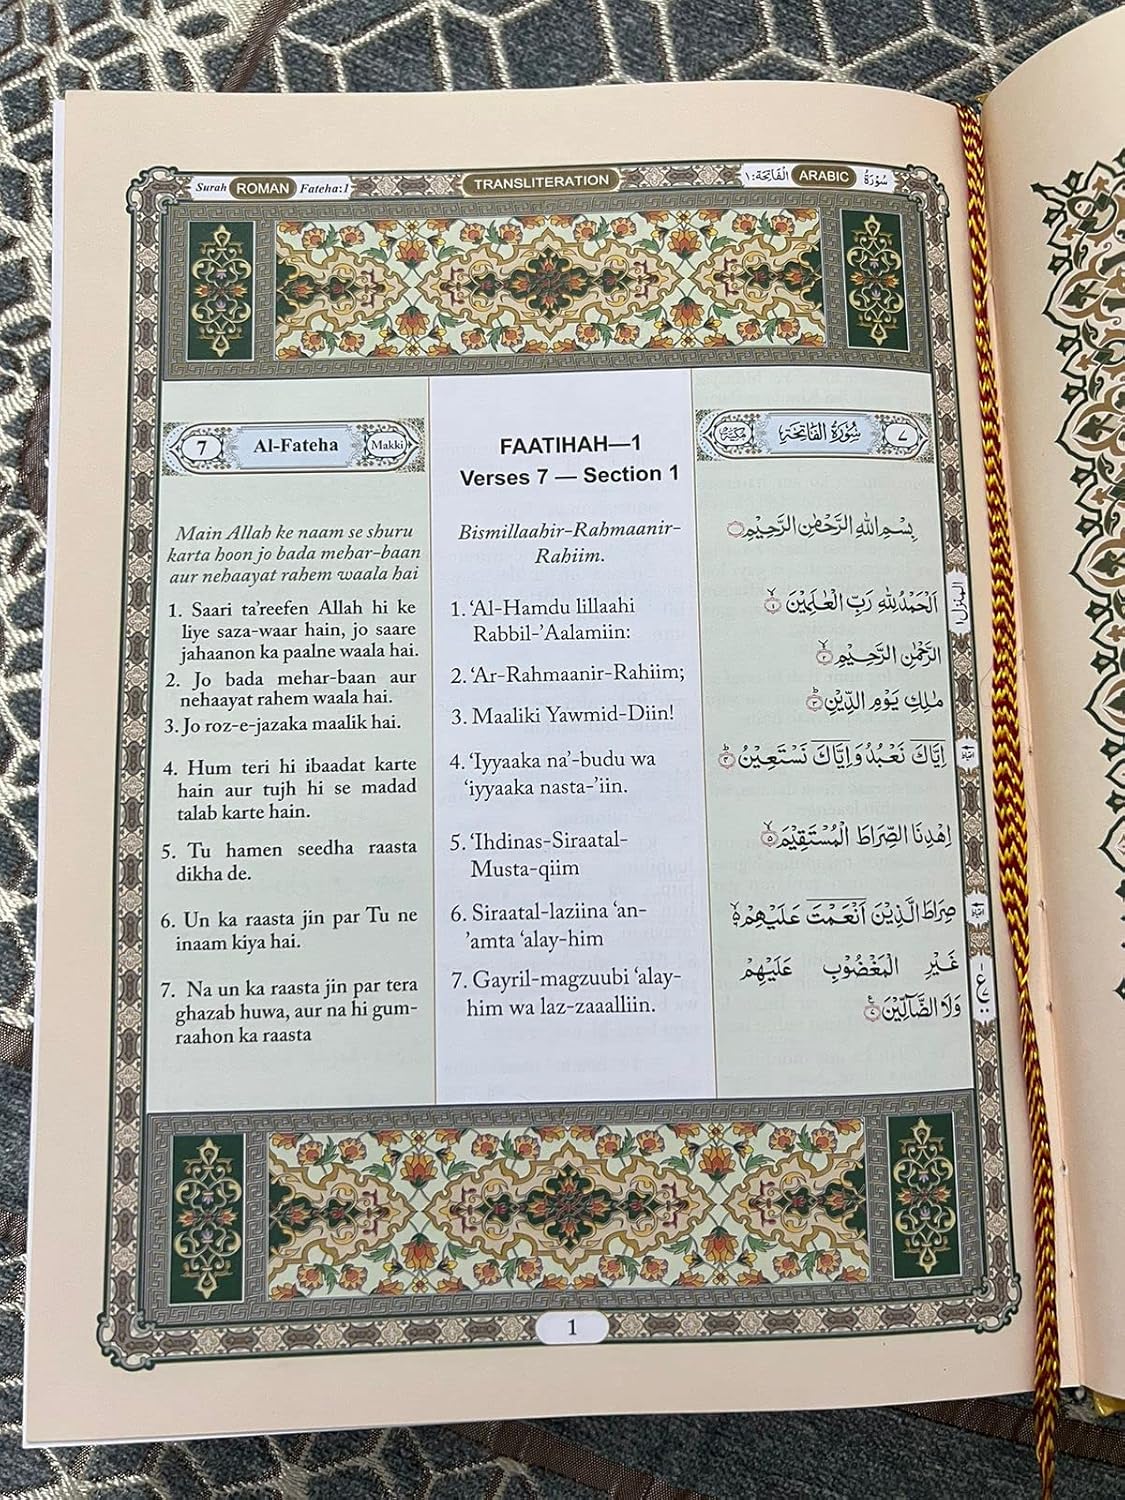 Surah ROMAN Fateha:1
TRANSLITERATION
سُوْرَةُ ARABIC الْفَاتِحَة:١
7 Al-Fateha Makki
Main Allah ke naam se shuru
karta hoon jo bada mehar-baan
aur nehaayat rahem waala hai
1. Saari ta'reefen Allah hi ke
liye saza-waar hain, jo saare
jahaanon ka paalne waala hai.
2. Jo bada mehar-baan aur
nehaayat rahem waala hai.
3. Jo roz-e-jazaka maalik hai.
4. Hum teri hi ibaadat karte
hain aur tujh hi se madad
talab karte hain.
5. Tu hamen seedha raasta
dikha de.
6. Un ka raasta jin par Tu ne
inaam kiya hai.
7. Na un ka raasta jin par tera
ghazab huwa, aur na hi gum-
raahon ka raasta
FAATIHAH—1
Verses 7 — Section 1
Bismillaahir-Rahmaanir-
Rahiim.
1. ‘Al-Hamdu lillaahi
Rabbil-’Aalamiin:
2. ‘Ar-Rahmaanir-Rahiim;
3. Maaliki Yawmid-Diin!
4. ‘Iyyaaka na’-budu wa
‘iyyaaka nasta-’iin.
5. ‘Ihdinas-Siraatal-
Musta-qiim
6. Siraatal-laziina ‘an-
’amta ‘alay-him
7. Gayril-magzuubi ‘alay-
him wa laz-zaaalliin.
٧ سُوْرَةُ الْفَاتِحَةِ مَكِّيَّةٌ
بِسْمِ اللّٰهِ الرَّحْمٰنِ الرَّحِيْمِ
اَلْحَمْدُ لِلّٰهِ رَبِّ الْعٰلَمِيْنَ ۙ١
الرَّحْمٰنِ الرَّحِيْمِ ۙ٢
مٰلِكِ يَوْمِ الدِّيْنِ ؕ٣
اِيَّاكَ نَعْبُدُ وَاِيَّاكَ نَسْتَعِيْنُ ؕ٤
اِهْدِنَا الصِّرَاطَ الْمُسْتَقِيْمَ ۙ٥
صِرَاطَ الَّذِيْنَ اَنْعَمْتَ عَلَيْهِمْ ۙ٦
غَيْرِ الْمَغْضُوْبِ عَلَيْهِمْ
وَلَا الضَّآلِّيْنَ ٧
المنزل ١
1